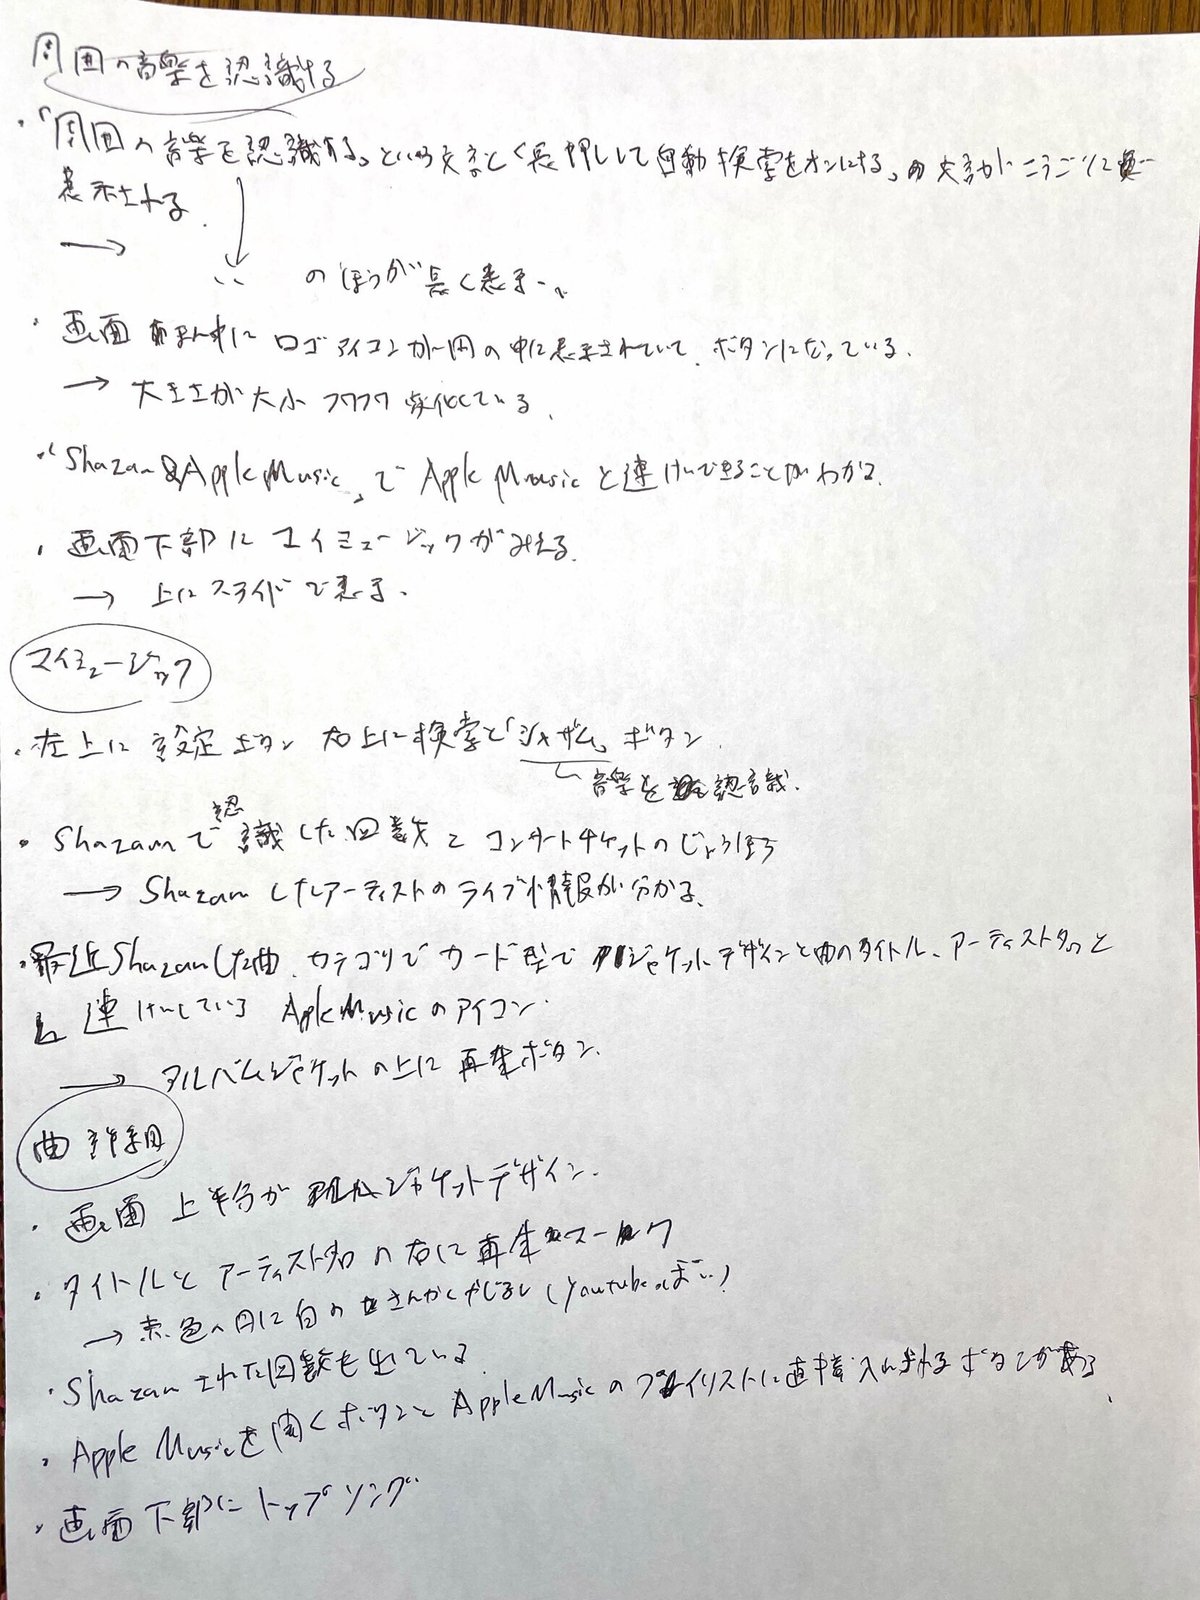 周囲の音楽を認識する
・「周囲の音楽を認識する」という文字と「長押しして自動検索をオンにする」の文字がこうごに
表示される.
→
〃 のほうが長く表示。
・画面まん中にロゴアイコンが円の中に表示されていて、ボタンになっている.
→ 大きさが大小フワフワ変化している.
・「Shazam&Apple Music」でApple Musicと連けいできることがわかる.
・画面下部にマイミュージックがみえる.
→ 上にスライドで表示.
マイミュージック
・左上に設定ボタン 右上に検索と「シャザム」ボタン.
音楽を認識.
・Shazamで認識した回数とコンサートチケットのじょうほう
→ Shazamしたアーティストのライブ情報が分かる.
・最近Shazamした曲、カテゴリでカード型でジャケットデザインと曲のタイトル、アーティスト名と
連けいしているApple Musicのアイコン.
→ アルバムジャケットの上に再生ボタン.
曲詳細
・画面上半分がジャケットデザイン.
・タイトルとアーティスト名の右に再生マーク
→ 赤色の円に白のさんかくやじるし(Youtubeっぽい)
・Shazamされた回数も出ている
・Apple Musicを開くボタンとApple Musicのプレイリストに直接入れれるボタンがある.
・画面下部にトップソング